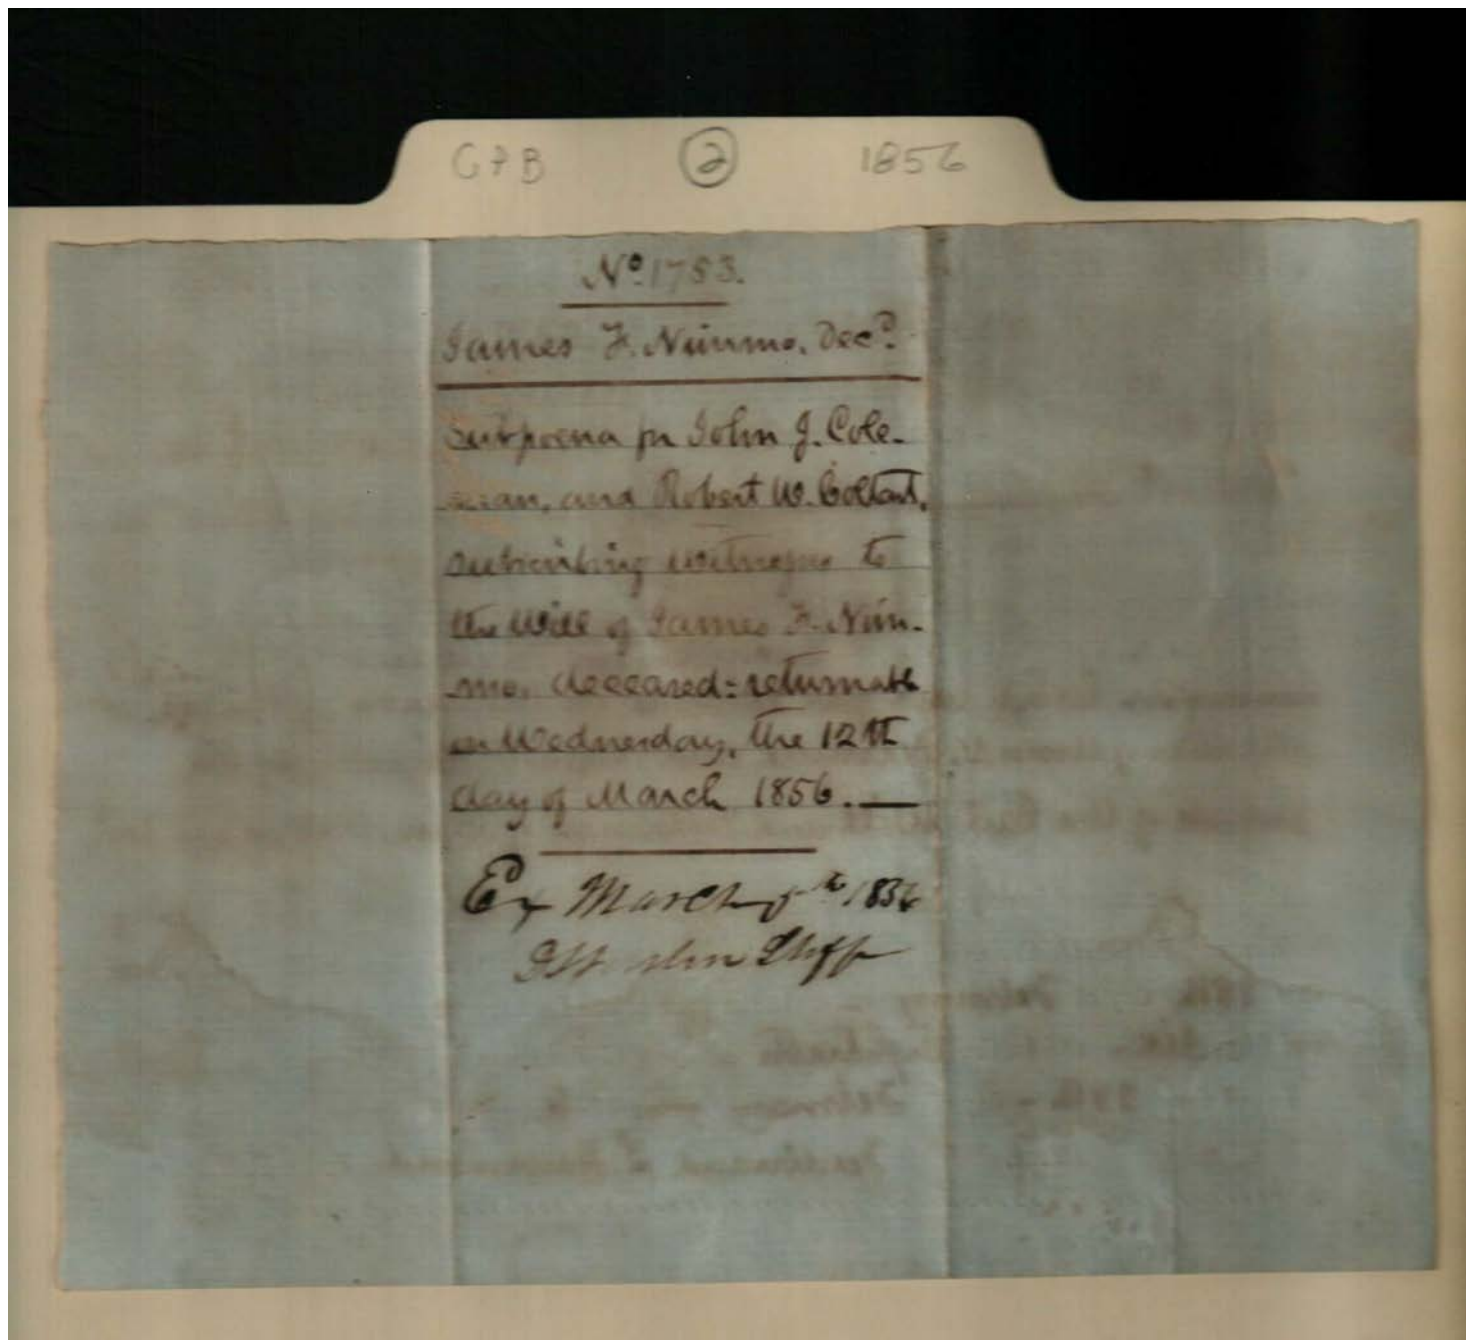 CFB 2 1856
No. 1753.
James F. Nimmo, Decd.
Subpoena for John J. Cole-
man, and Robert W. Coltart,
subscribing witnesses to
the Will of James F. Nim-
mo, deceased = returnable
on Wednesday, the 12th
day of March 1856.
Ex March 5th 1856
Shff